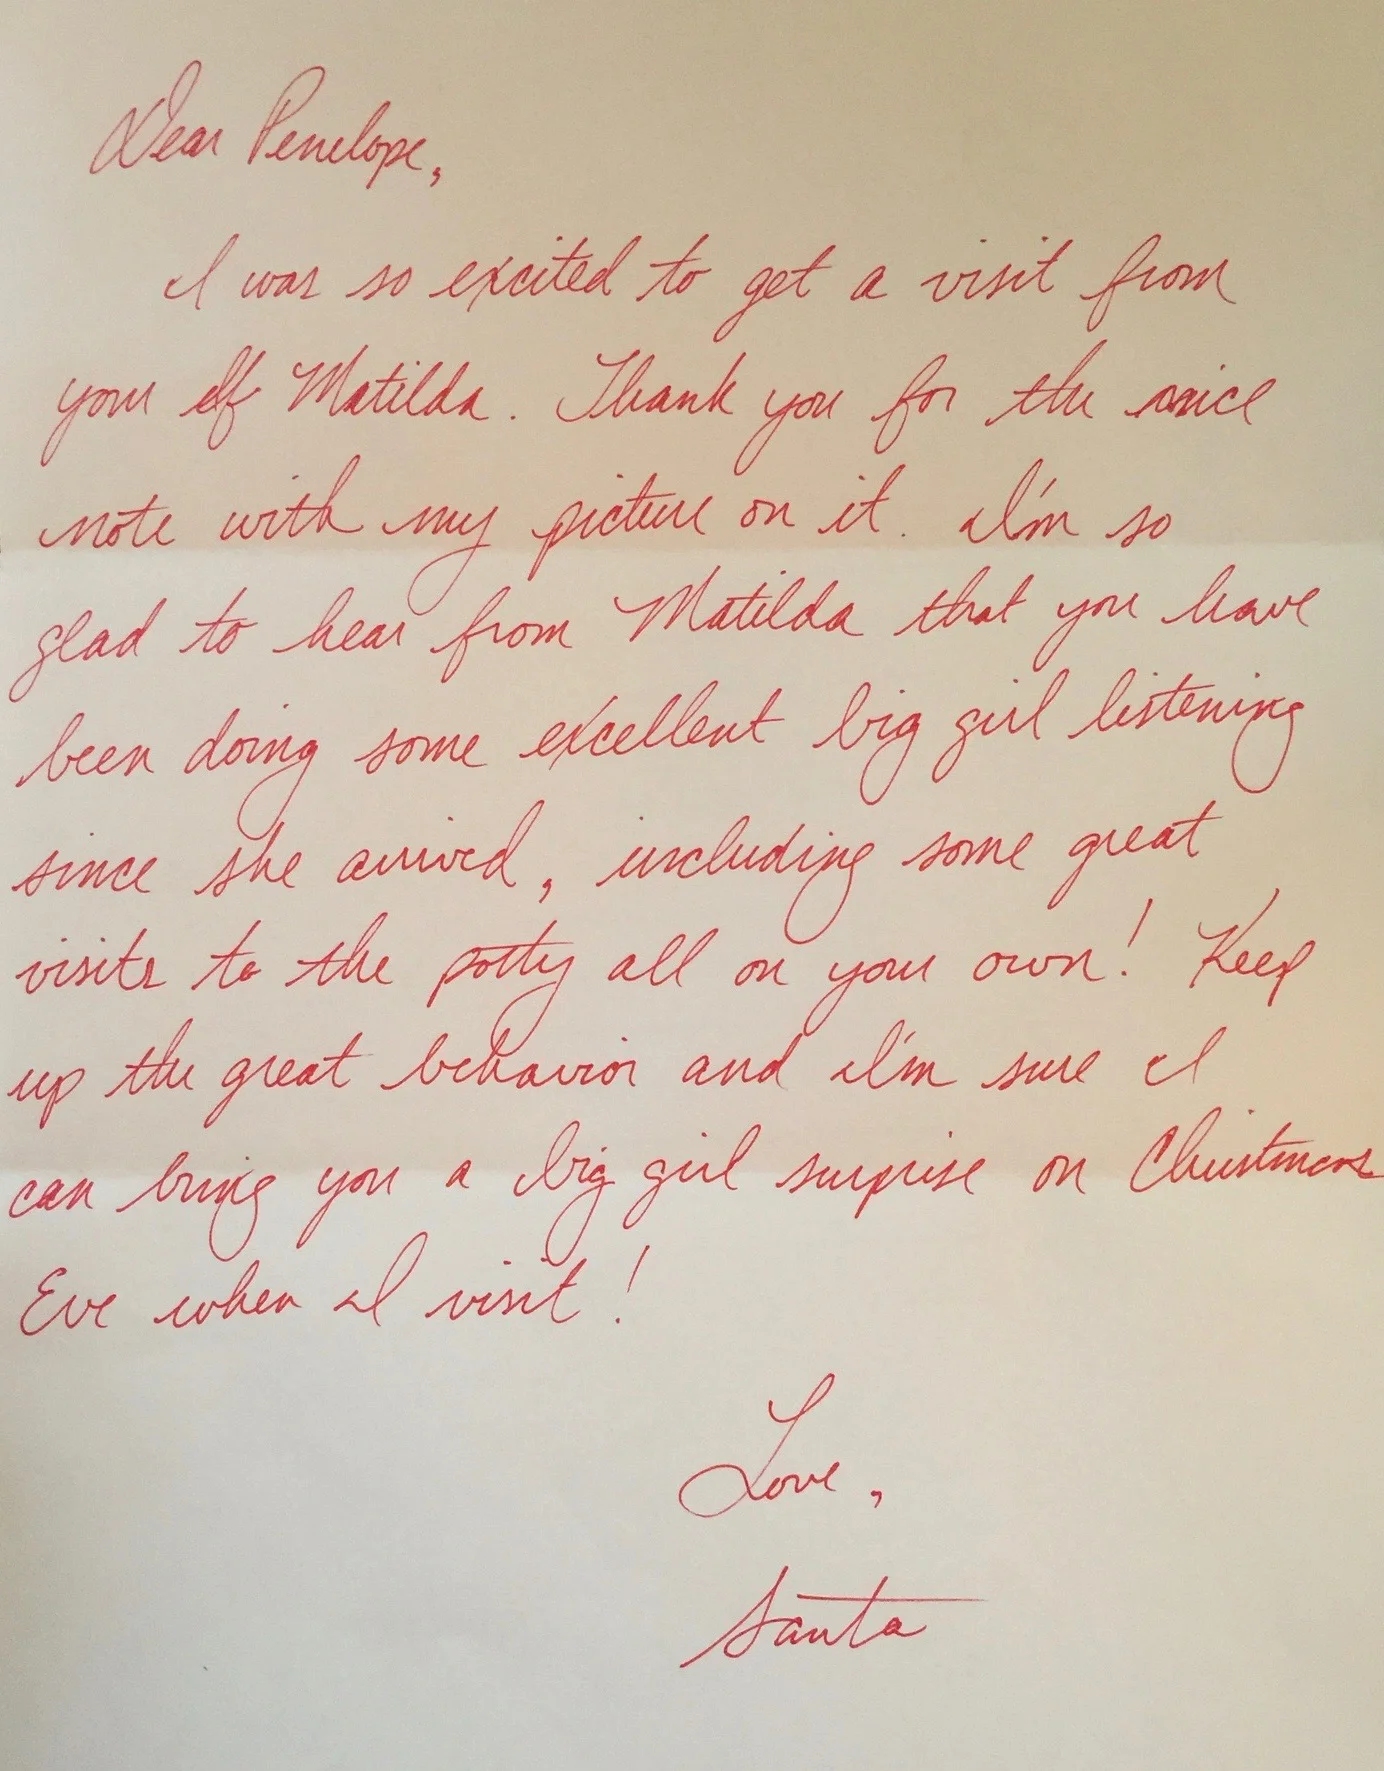 Dear Penelope,
I was so excited to get a visit from
your elf Matilda. Thank you for the nice
note with my picture on it. I'm so
glad to hear from Matilda that you have
been doing some excellent big girl listening
since she arrived, including some great
visits to the potty all on your own! Keep
up the great behavior and I'm sure I
can bring you a big girl surprise on Christmas
Eve when I visit!
Love,
Santa